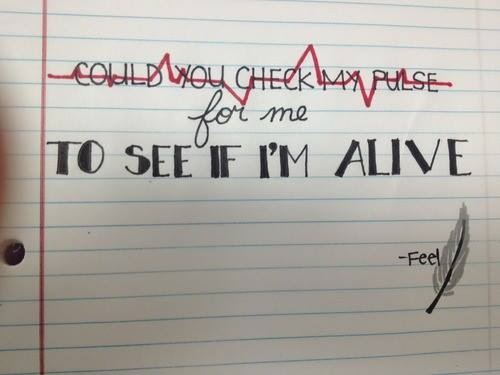 COULD YOU CHECK MY PULSE
for me
TO SEE IF I'M ALIVE
-Feel